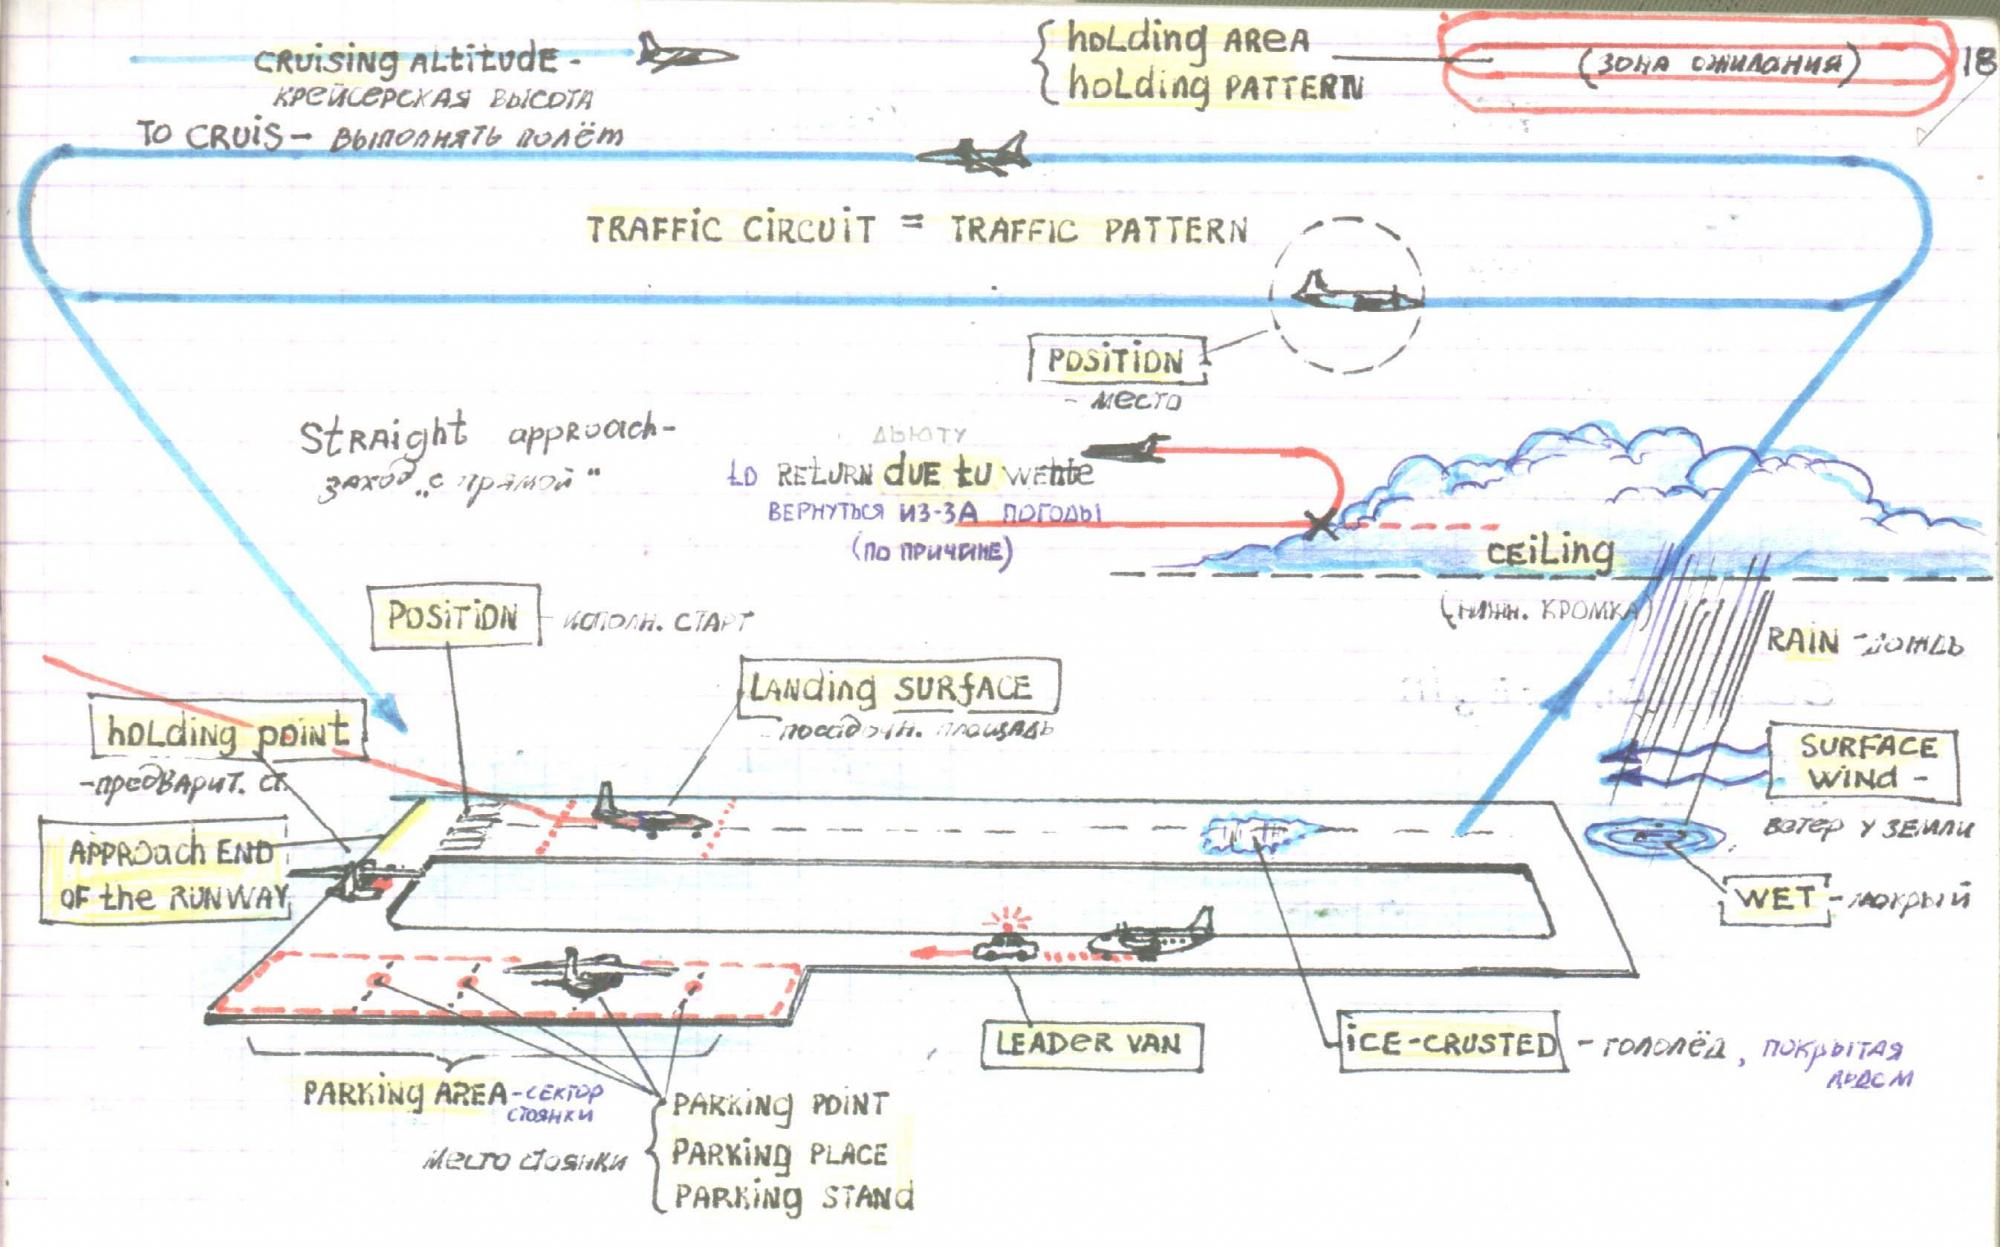 CRUiSiNg ALtitUdE -
КРЕЙСЕРСКАЯ ВЫСОТА
TO CRUiS - ВЫПОЛНЯТЬ ПОЛЁТ
hOLding AREA
hOLding PATTERN
(ЗОНА ОЖИДАНИЯ)
18
TRAFFiC CiRCUiT = TRAFFiC PATTERN
POSiTiON
- МЕСТО
StRAight appROach -
ЗАХОД „С ПРЯМОЙ"
ДЬЮТУ
tO REtURN dUE tU
ВЕРНУТЬСЯ ИЗ-ЗА ПОГОДЫ
(ПО ПРИЧИНЕ)
CEiLiNg
(НИЖН. КРОМКА)
POSiTiON - ИСПОЛН. СТАРТ
RAIN - ДОЖДЬ
LANding SURfACE
- ПОСАДОЧН. ПЛОЩАДЬ
hOLding pOiNt
- ПРЕДВАРИТ. СТ.
SURFACE
WiNd -
ВЕТЕР У ЗЕМЛИ
APPROach END
OF the RUNWAY
WET - МОКРЫЙ
LEADER VAN
iCE-CRUSTED - ГОЛОЛЁД, ПОКРЫТАЯ
ЛЬДОМ
PARKiNg AREA - СЕКТОР
СТОЯНКИ
МЕСТО СТОЯНКИ
PARKiNg POiNT
PARKiNg PLACE
PARKiNg STANd